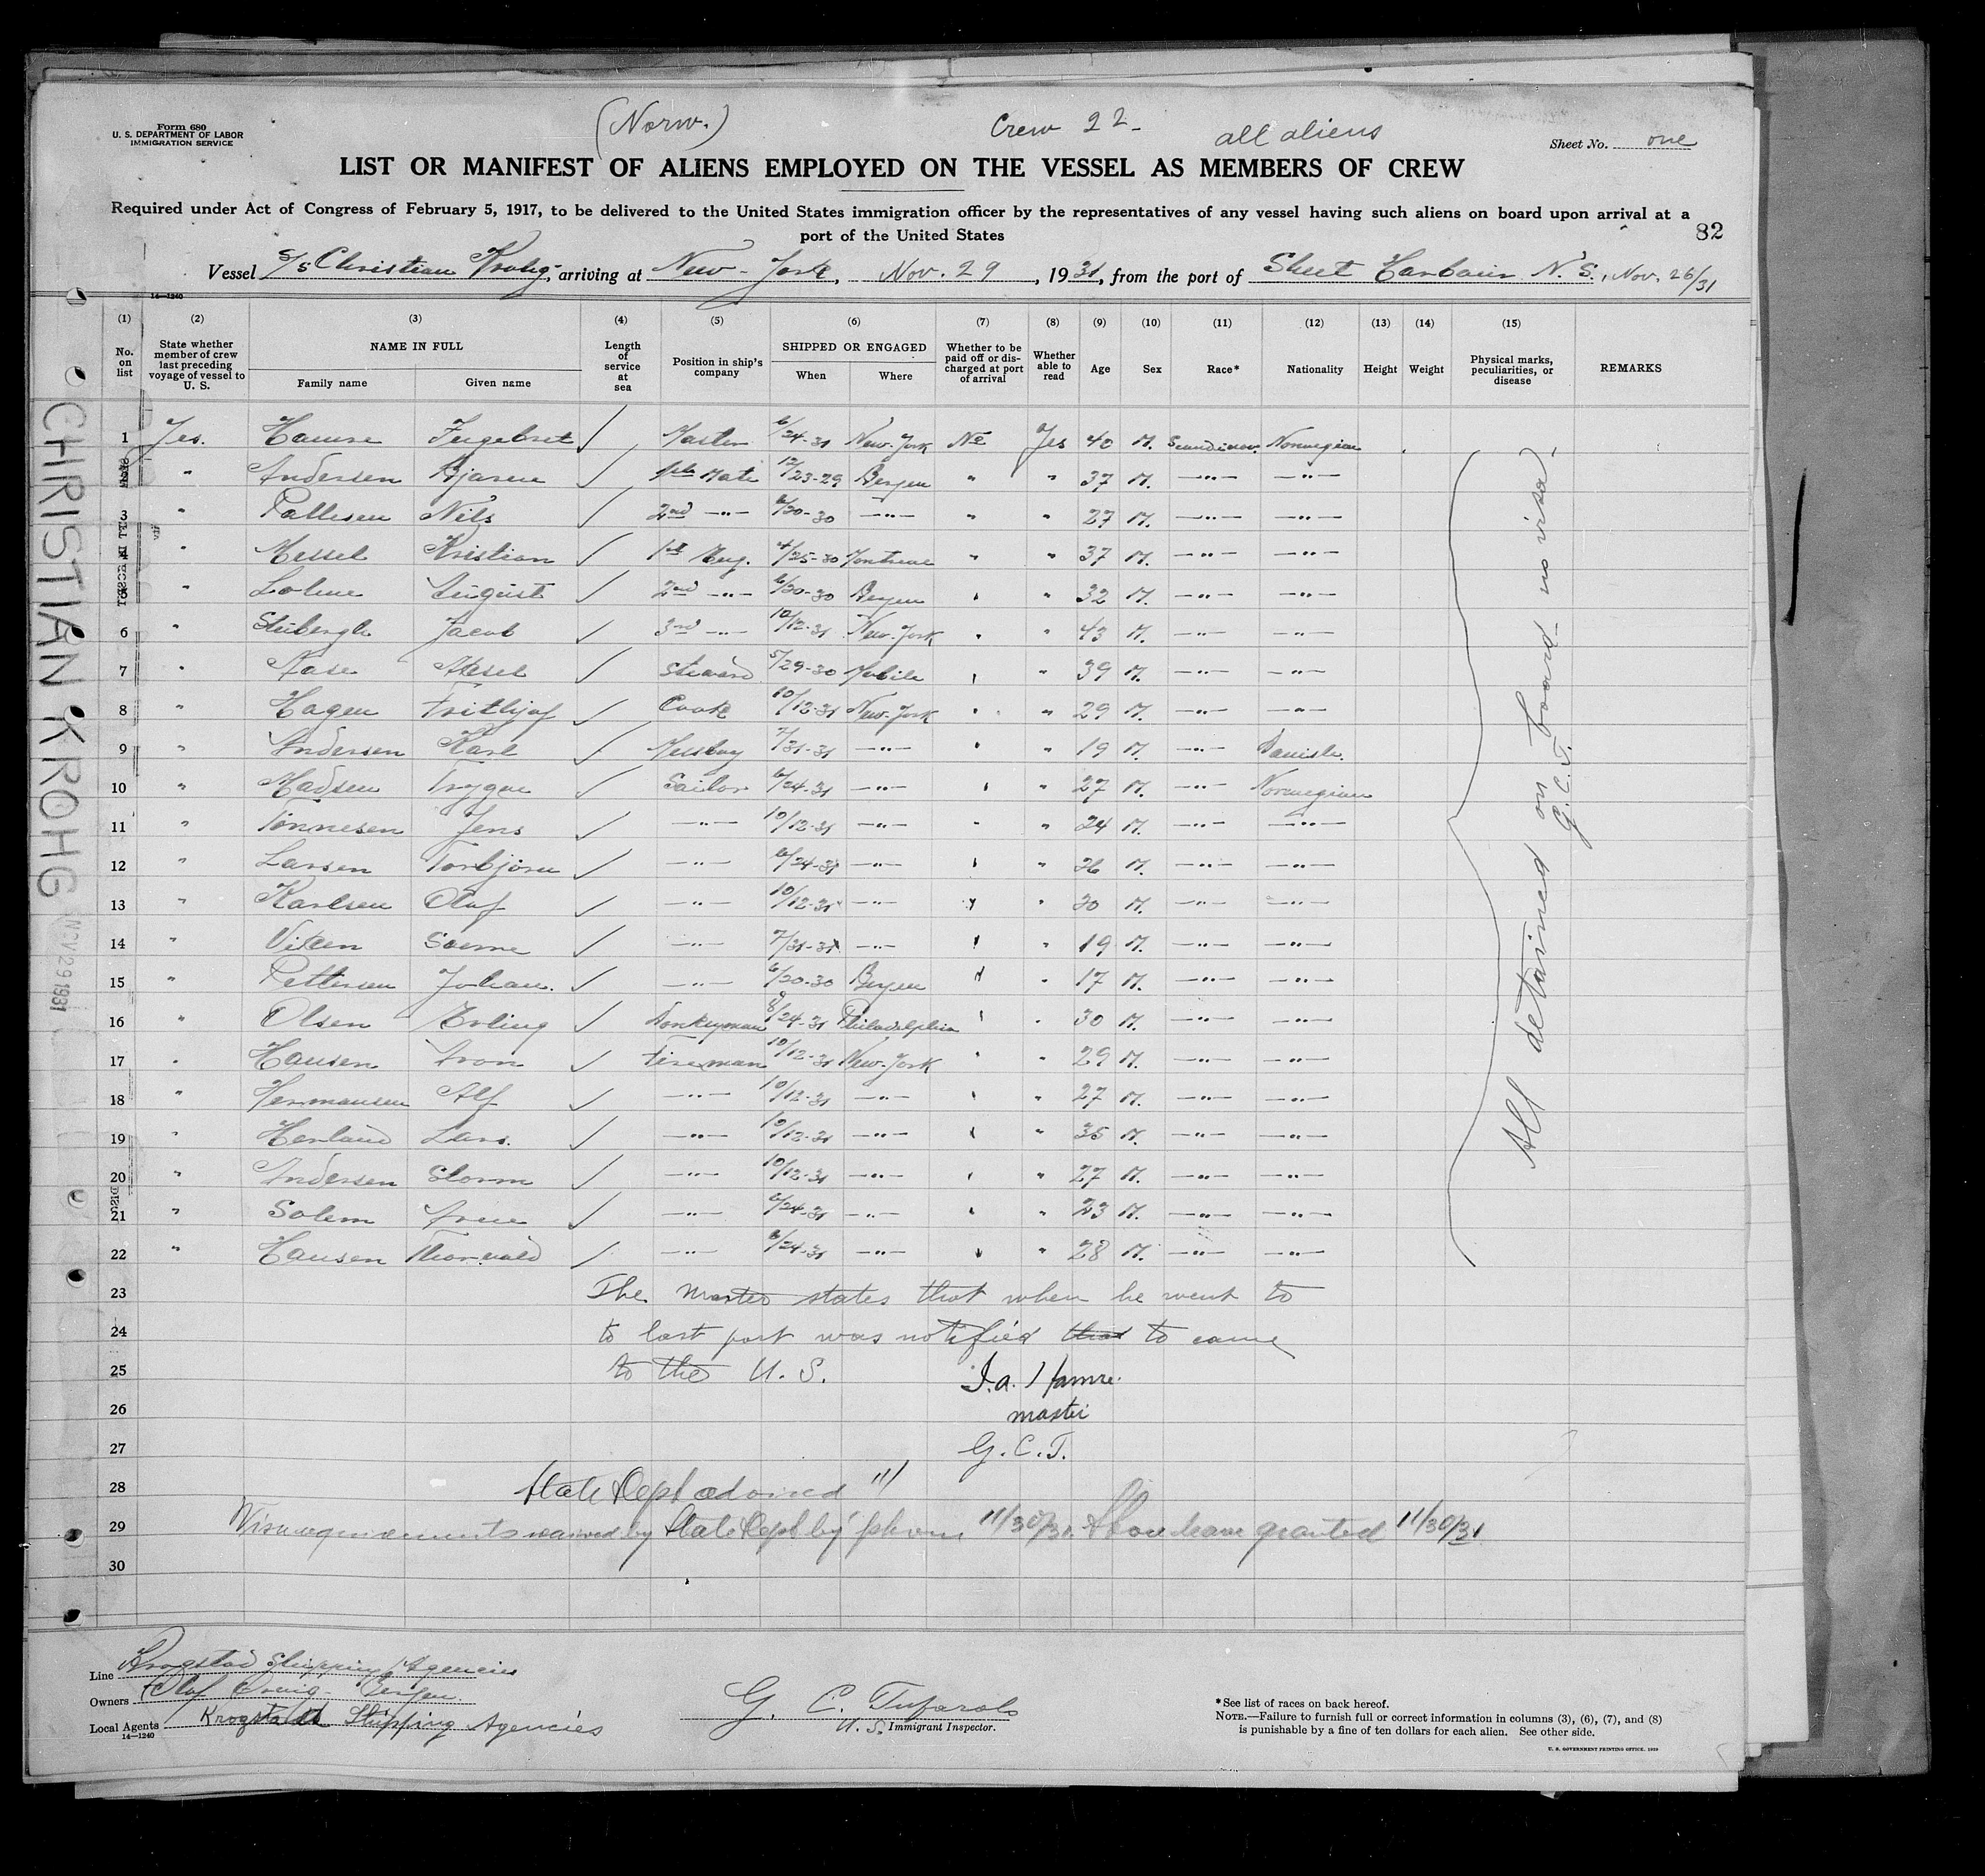 (Norw.) Crew 22 - all aliens
Form 680
U. S. DEPARTMENT OF LABOR
IMMIGRATION SERVICE
Sheet No. one
LIST OR MANIFEST OF ALIENS EMPLOYED ON THE VESSEL AS MEMBERS OF CREW
Required under Act of Congress of February 5, 1917, to be delivered to the United States immigration officer by the representatives of any vessel having such aliens on board upon arrival at a
port of the United States
82
Vessel S/S Christian Krohg, arriving at New-York, Nov. 29, 1931, from the port of Sheet Harbour N.S., Nov. 26/31
14—1240
(1) (2) (3) (4) (5) (6) (7) (8) (9) (10) (11) (12) (13) (14) (15)
No. on list
State whether member of crew last preceding voyage of vessel to U. S.
NAME IN FULL
Family name Given name
Length of service at sea
Position in ship's company
SHIPPED OR ENGAGED
When Where
Whether to be paid off or discharged at port of arrival
Whether able to read
Age Sex Race* Nationality Height Weight
Physical marks, peculiarities, or disease
REMARKS
1 Yes. Hamre Ingebret ✓ Master 6/24-31 New-York No Yes 40 M. Scandinav. Norwegian
2 " Andersen Bjarne ✓ 1st Mate 12/23-29 Bergen " " 37 M. —"— —"—
3 " Pallesen Nils ✓ 2nd —"— 6/20-30 —"— " " 27 M. —"— —"—
4 " Messel Kristian ✓ 1st Eng. 4/25-30 Montreal " " 37 M. —"— —"—
5 " August ✓ 2nd —"— 6/20-30 Bergen " " 32 M. —"— —"—
6 " Stubergh Jacob ✓ 3rd —"— 10/12-31 New-York " " 43 M. —"— —"—
7 " Aase Aksel ✓ Steward 5/29-30 Mobile " " 39 M. —"— —"—
8 " Hagen Frithjof ✓ Cook 10/12-31 New-York " " 29 M. —"— —"—
9 " Andersen Karl ✓ Messboy 7/31-31 —"— " " 19 M. —"— Danish.
10 " Madsen Trygve ✓ Sailor 6/24-31 —"— " " 27 M. —"— Norwegian
11 " Tönnesen Jens ✓ —"— 10/12-31 —"— " " 24 M. —"— —"—
12 " Larsen Torbjörn ✓ —"— 6/24-31 —"— " " 26 M. —"— —"—
13 " Karlsen Olaf ✓ —"— 10/12-31 —"— " " 30 M. —"— —"—
14 " ✓ —"— 7/31-31 —"— " " 19 M. —"— —"—
15 " Pettersen Johan. ✓ —"— 6/20-30 Bergen " " 17 M. —"— —"—
16 " Olsen Erling ✓ Donkeyman 8/24-31 Philadelphia " " 30 M. —"— —"—
17 " Hansen Aron ✓ Fireman 10/12-31 New-York " " 29 M. —"— —"—
18 " Hermansen Alf ✓ —"— 10/12-31 —"— " " 27 M. —"— —"—
19 " Henland Lars. ✓ —"— 10/12-31 —"— " " 35 M. —"— —"—
20 " Andersen Storm ✓ —"— 10/12-31 —"— " " 27 M. —"— —"—
21 " Solem Arne ✓ —"— 6/24-31 —"— " " 23 M. —"— —"—
22 " Hansen Thorvald ✓ —"— 6/24-31 —"— " " 28 M. —"— —"—
All detained on board - no visa -
G. C. T.
23 The master states that when he went to
24 to last port was notified that to come
25 to the U. S. I. A. Hamre.
26 master
27 G. C. T.
28 State Dept advised 11/
29 Visa requirements waived by State Dept by phone 11/30/31. Shore leave granted 11/30/31.
30
CHRISTIAN KROHG
NOV 29 1931
Line Krogstad Shipping Agencies
Owners Olaf Bergen.
Local Agents Krogstad Shipping Agencies
14—1240
G. C. Tufarolo
U. S. Immigrant Inspector.
* See list of races on back hereof.
NOTE.—Failure to furnish full or correct information in columns (3), (6), (7), and (8)
is punishable by a fine of ten dollars for each alien. See other side.
U. S. GOVERNMENT PRINTING OFFICE. 1929